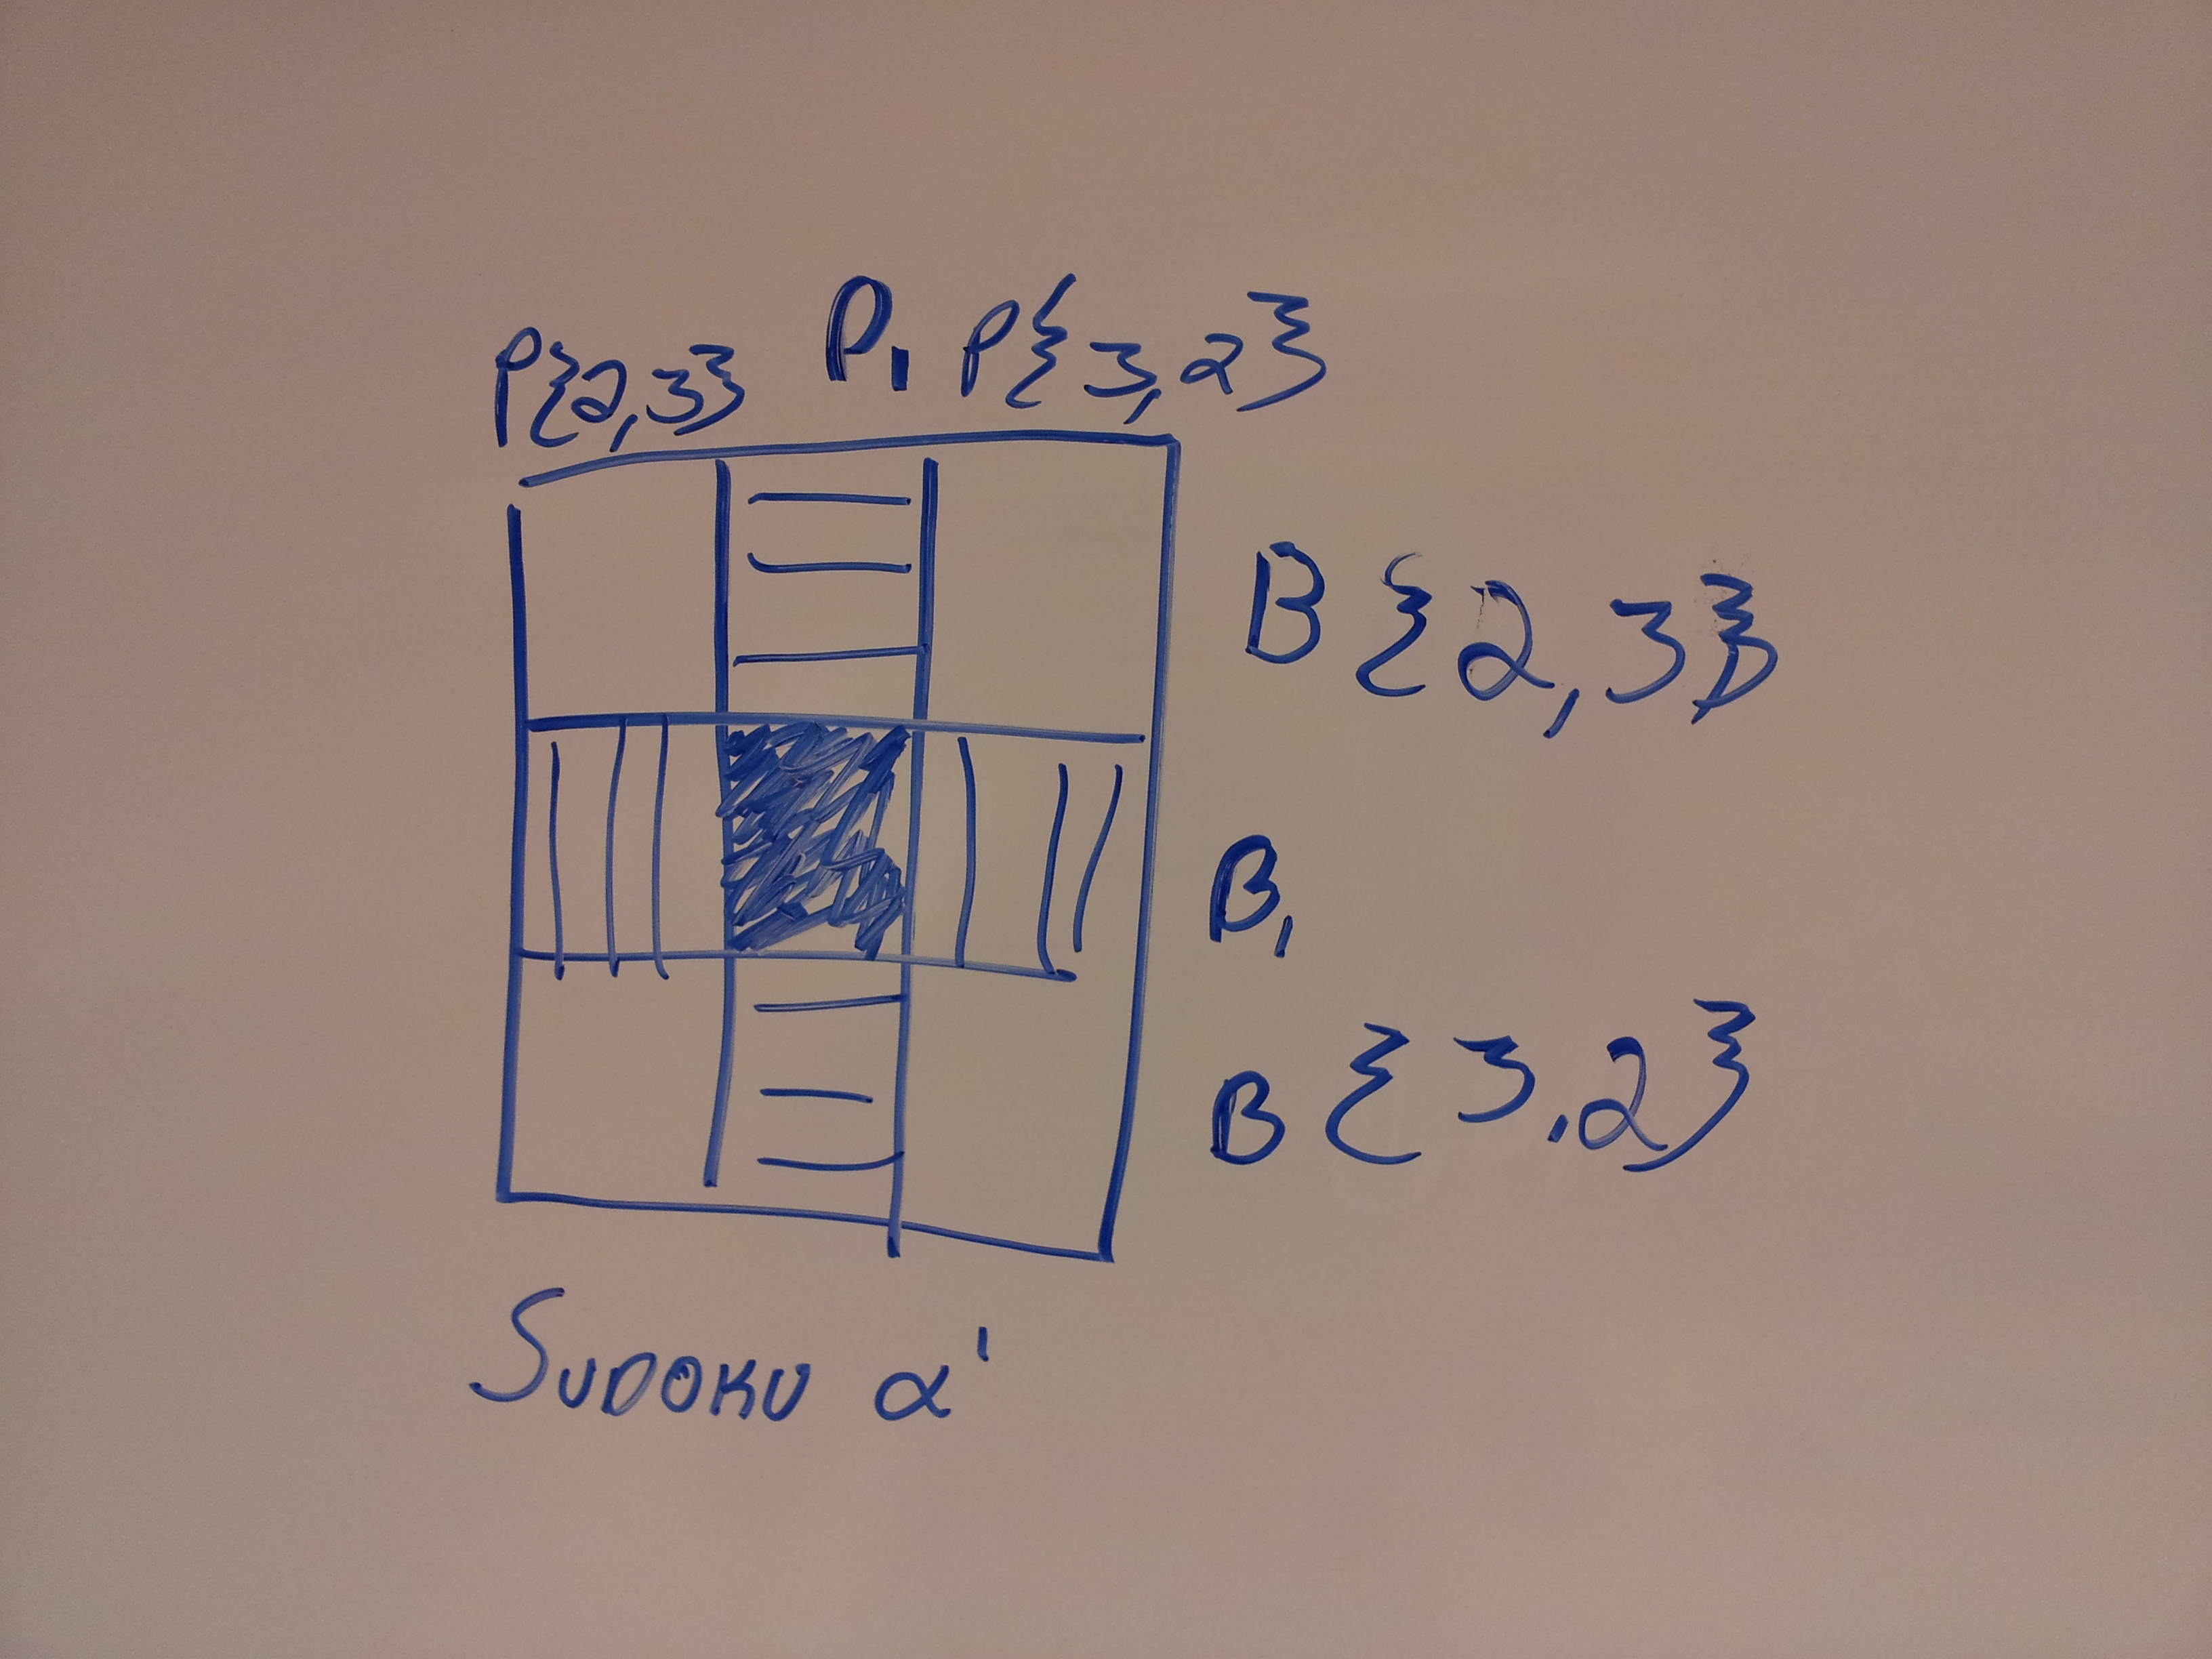 P{2,3} P1 P{3,2}
B{2,3}
B1
B{3,2}
SUDOKU α'